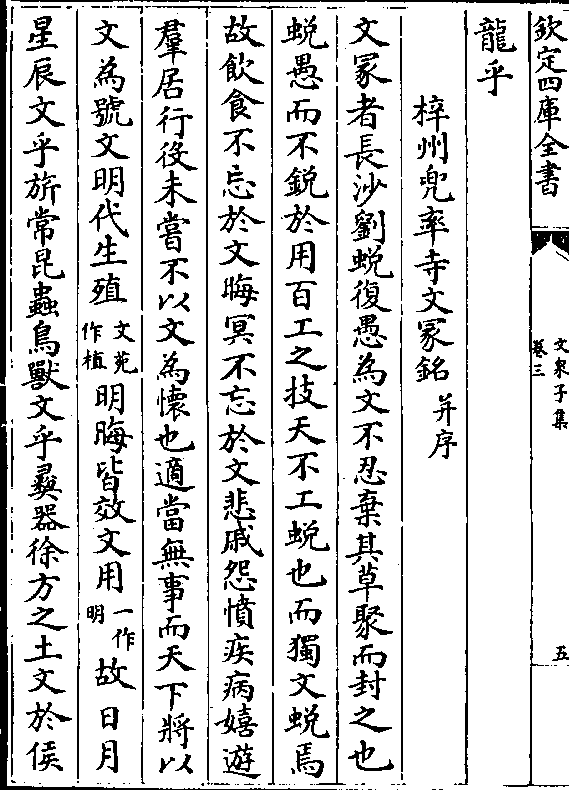 欽定四庫全書
文泉子集
卷三
五
龍乎
梓州兜率寺文冢銘并序
文冢者長沙劉蛻復愚為文不忍棄其草聚而封之也
蛻愚而不銳於用百工之技天不工蛻也而獨文蛻焉
故飲食不忘於文晦冥不忘於文悲戚怨憤疾病嬉遊
羣居行役未嘗不以文為懷也適當無事而天下將以
文為號文明代生殖文苑作植明晦皆效文用一作明故日月
星辰文乎旂常昆蟲鳥獸文乎彛器徐方之土文於侯